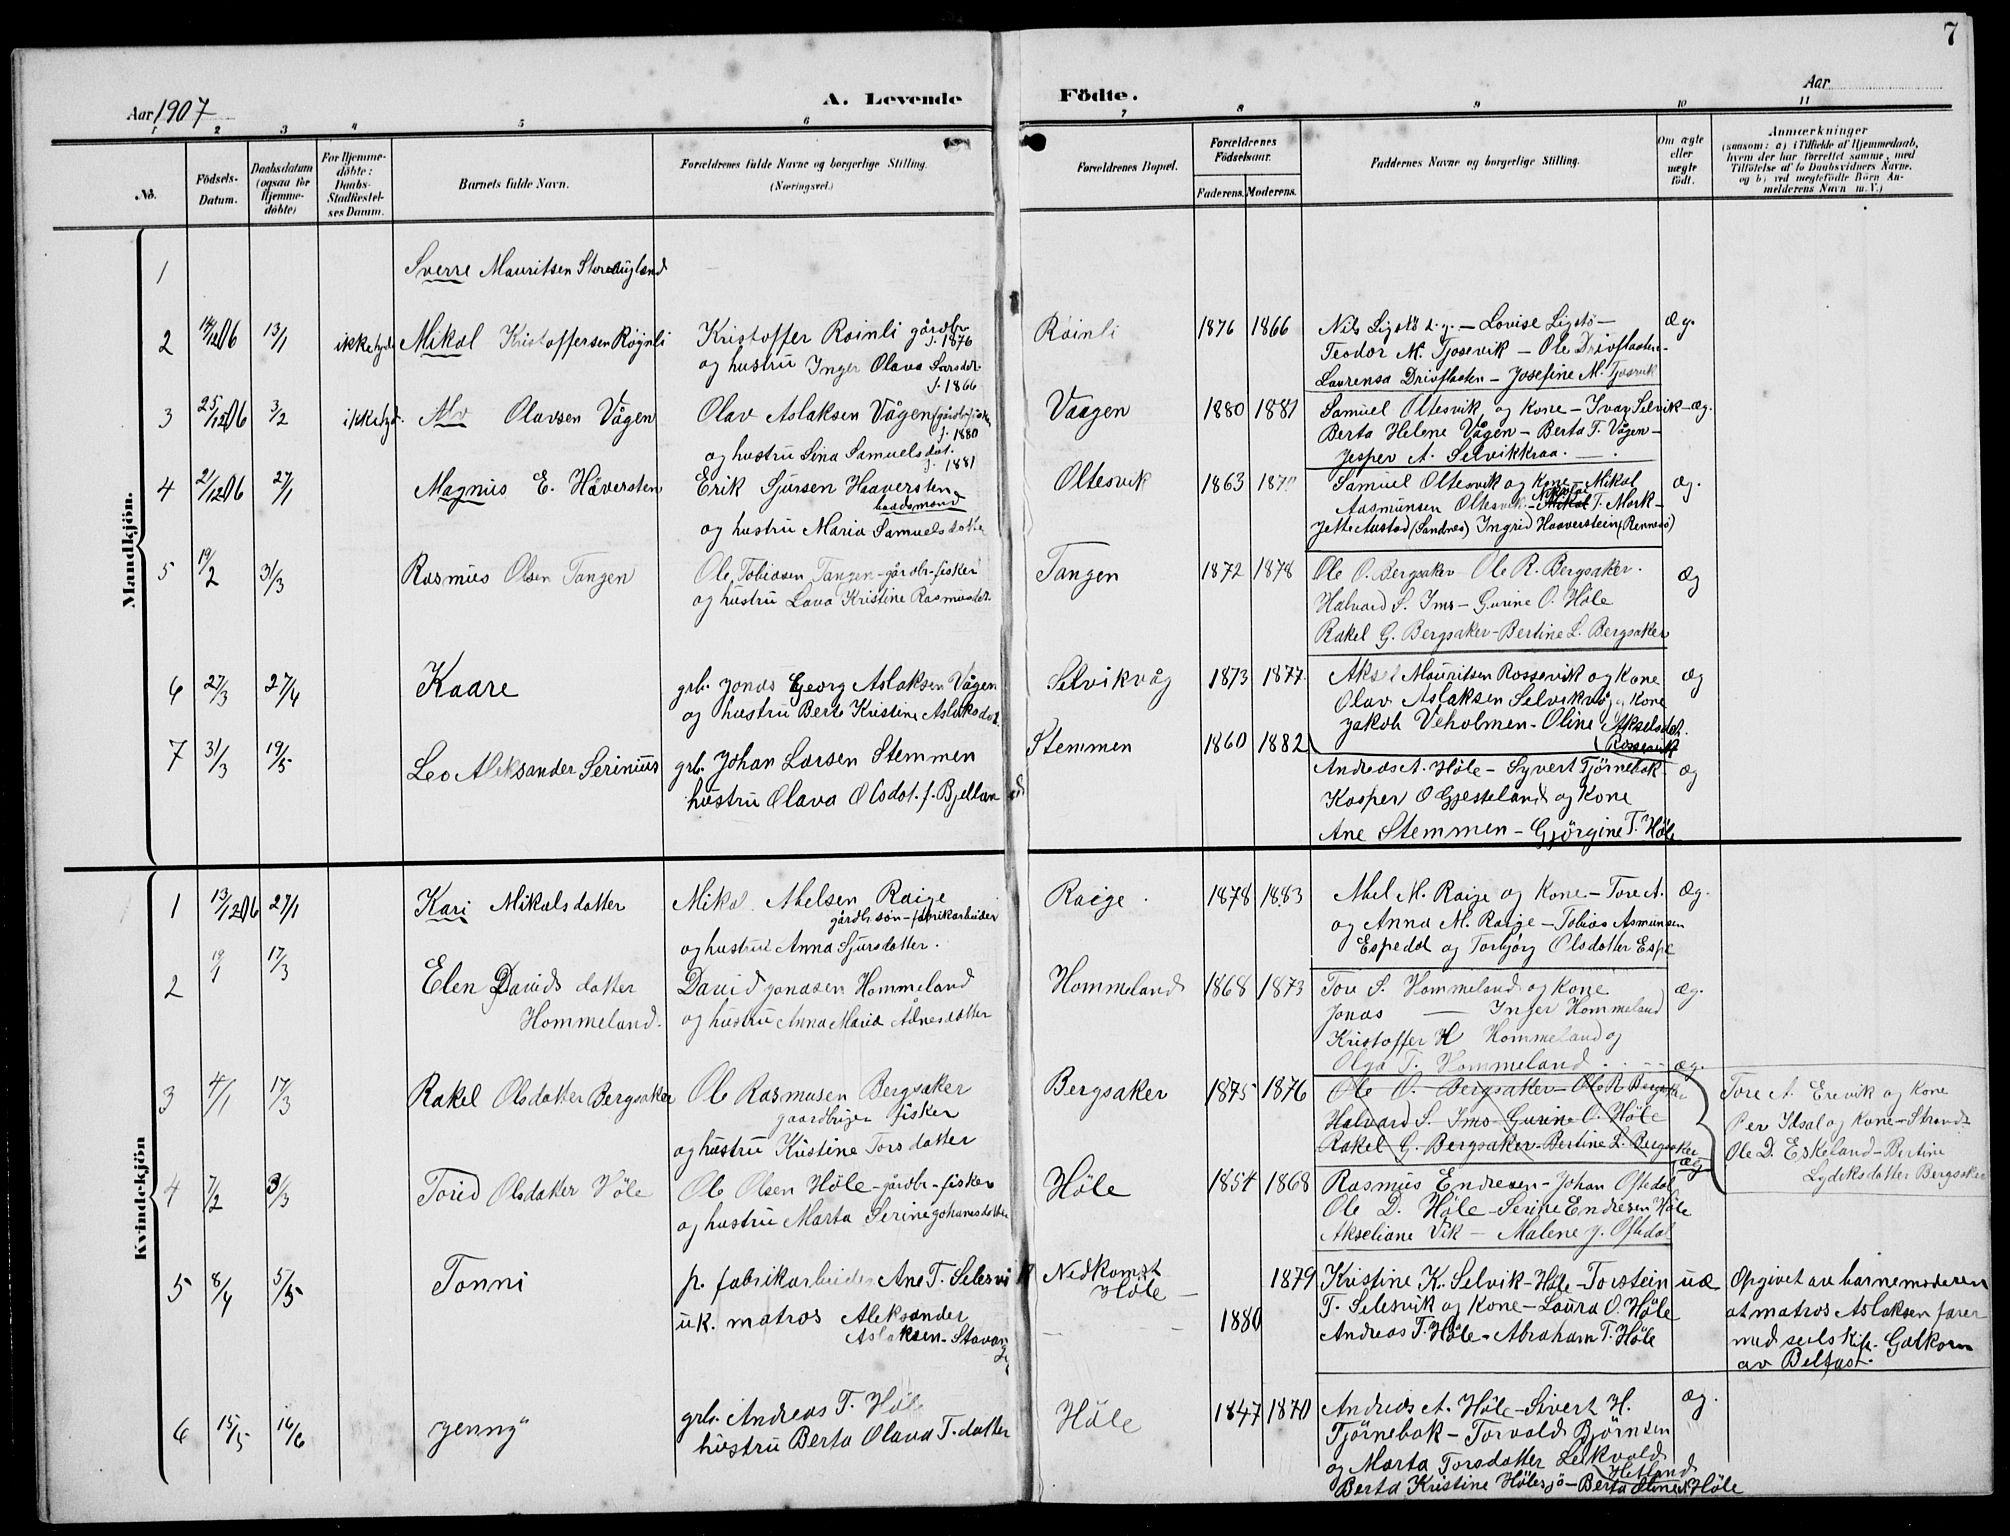 7
Aar 1907
A. Levende Födte.
Aar
1 2 3 4 5 6 7 8 9 10 11
No.
Födsels-Datum.
Daabsdatum (ogsaa for Hjemme-döbte)
For Hjemme-döbte: Daabs-Stadfæstel-ses Datum.
Barnets fulde Navn.
Forældrenes fulde Navne og borgerlige Stilling. (Næringsvei.)
Forældrenes Bopæl.
Forældrenes Födselsaar.
Faderens. Moderens.
Faddernes Navne og borgerlige Stilling.
Om ægte eller uægte födt.
Anmærkninger
(saasom: a) i Tilfælde af Hjemmedaab, hvem der har forrettet samme, med Tilföielse af to Daabsvidners Navne, og b) ved uægtefödte Börn An-melderens Navn m. V.)
Mandkjön.
1 Sverre Mauritsen
2 14/12 06 13/1 Mikal Kristoffersen Røynli
Kristoffer Røinli gårdbr. f. 1876
og hustru Inger Olava Larsdtr. f. 1866
Røinli 1876 1866
Nils Ligstö s.y. – Lovise Ligstö –
Teodor M. Tjosevik – Ole Drivflaaten –
Laurensa Drivflaaten – Josefine M. Tjosevik
æg.
3 25/12 06 3/2 Alv Olavsen Vågen
Olav Aslaksen Vågen (gårdbr. fisker f. 1880
og hustru Sina Samuelsdat. f. 1881
Vaagen 1880 1881
Samuel Oltesvik og Kone – Ivar Selvik –
Berta Helene Vågen – Berta T. Vågen –
Jesper A. Selvikkraa. –
æg.
4 21/12 06 27/1 Magnus E. Håversten
Erik Sjursen Haaversten
baadsmand
og hustru Maria Samuelsdotter
Oltesvik 1863
Samuel Oltesvik og Kone – Mikal
Aasmunsen Oltesvik – Nikolai T. Mork –
Jette Austad (Sandnes) Ingrid Haaverstein (Rennesö)
æg.
5 19/2 31/3 Rasmus Olsen Tangen
Ole Tobiasen Tangen – gårdbr – fisker
og hustru Lava Kristine Rasmusdtr.
Tangen 1872 1878
Ole O. Bergsaker – Ole R. Bergsaker.
Halvard S. Ims – Gurine O. Höle
Rakel G. Bergsaker – Bertine L. Bergsaker
æg
6 27/3 27/4 Kaare
grb. Jonas Georg Aslaksen Vågen
og hustru Berte Kristine Aslaksdot.
Selvikvåg 1873 1877
Aksel Mauritsen Rossevik og Kone
Olav Aslaksen Selvikvåg og Kone
Jakob Veholmen – Oline Akselsdot. (Rossevik
æg
7 31/3 19/5 Leo Aleksander Serinius
grb. Johan Larsen Stemmen
hustru Olava Olsdot. f. Bjelland
Stemmen 1860 1882
Andreas A. Höle – Syvert Tjörnebak
Kasper O Gjesteland og Kone
Ane Stemmen – Gjörgine T. Höle
æg
Kvindekjön
1 13/12 06 27/1 Kari Mikalsdatter
Mikal Abelsen Raige
gårdbr. sön – fabrikarbeider
og hustru Anna Sjursdatter.
Raige. 1878 1883
Abel M. Raige og Kone – Tore A.
og Anna M. Raige – Tobias Asmunsen
Espedal og Torbjörg Olsdatter Espe
æg.
2 19/1 17/3 Elen Davids datter Hommeland.
David Jonasen Hommeland
og hustru Anna Maria Ådnesdatter
Hommeland 1868 1873
Tore S. Hommeland og Kone
Jonas — Inger Hommeland
Kristoffer H Hommeland og
Olga T. Hommeland
æg.
3 4/1 17/3 Rakel Olsdatter Bergsaker
Ole Rasmusen Bergsaker
gaardbruger fisker
og hustru Kristine Torsdatter
Bergsaker 1875 1876
Ole O. Bergsaker – Ole R Bergsaker
Halvard S. Ims – Gurine O. Höle
Rakel G. Bergsaker – Bertine L. Bergsaker
æg.
Tore A. Erevik og Kone
Per Idsal og Kone – Strand
Ole D. Eskeland – Bertine
Lydeksdatter Bergsaker
4 7/2 3/3 Torid Olsdatter Höle
Ole Olsen Höle – gårdbr – fisker
og hustru Marta Serine Johanesdatter
Höle 1854 1868
Rasmus Endresen – Johan Oftedal
Ole D. Höle – Serine Endresen Höle
Akseliane Vik – Malene J. Oftedal
æg
5 8/4 5/5 Tonni
p. fabrikarbeider Ane T. Selesvik
uk. matros Aleksander
Aslaksen – Stavanger
Nedkomst Höle – 1880 1879
Kristine K. Selvik – Höle – Torstein
T. Selesvik og Kone – Laura O. Höle
Andreas T. Höle – Abraham T. Höle
uæ
Opgivet av barnemoderen
at matros Aslaksen farer
med seilskib. Galkorn
av Belfast.
6 15/5 16/6 Jenny
grb. Andreas T. Höle
hustru Berta Olava T. datter
Höle 1847 1870
Andreas A. Höle – Sivert H.
Tjörnebak – Torvald Björnsen
og Marta Torsdatter Leikvold Hetland
Berta Kristine Hölesjö – Berta Oline Höle
æg.